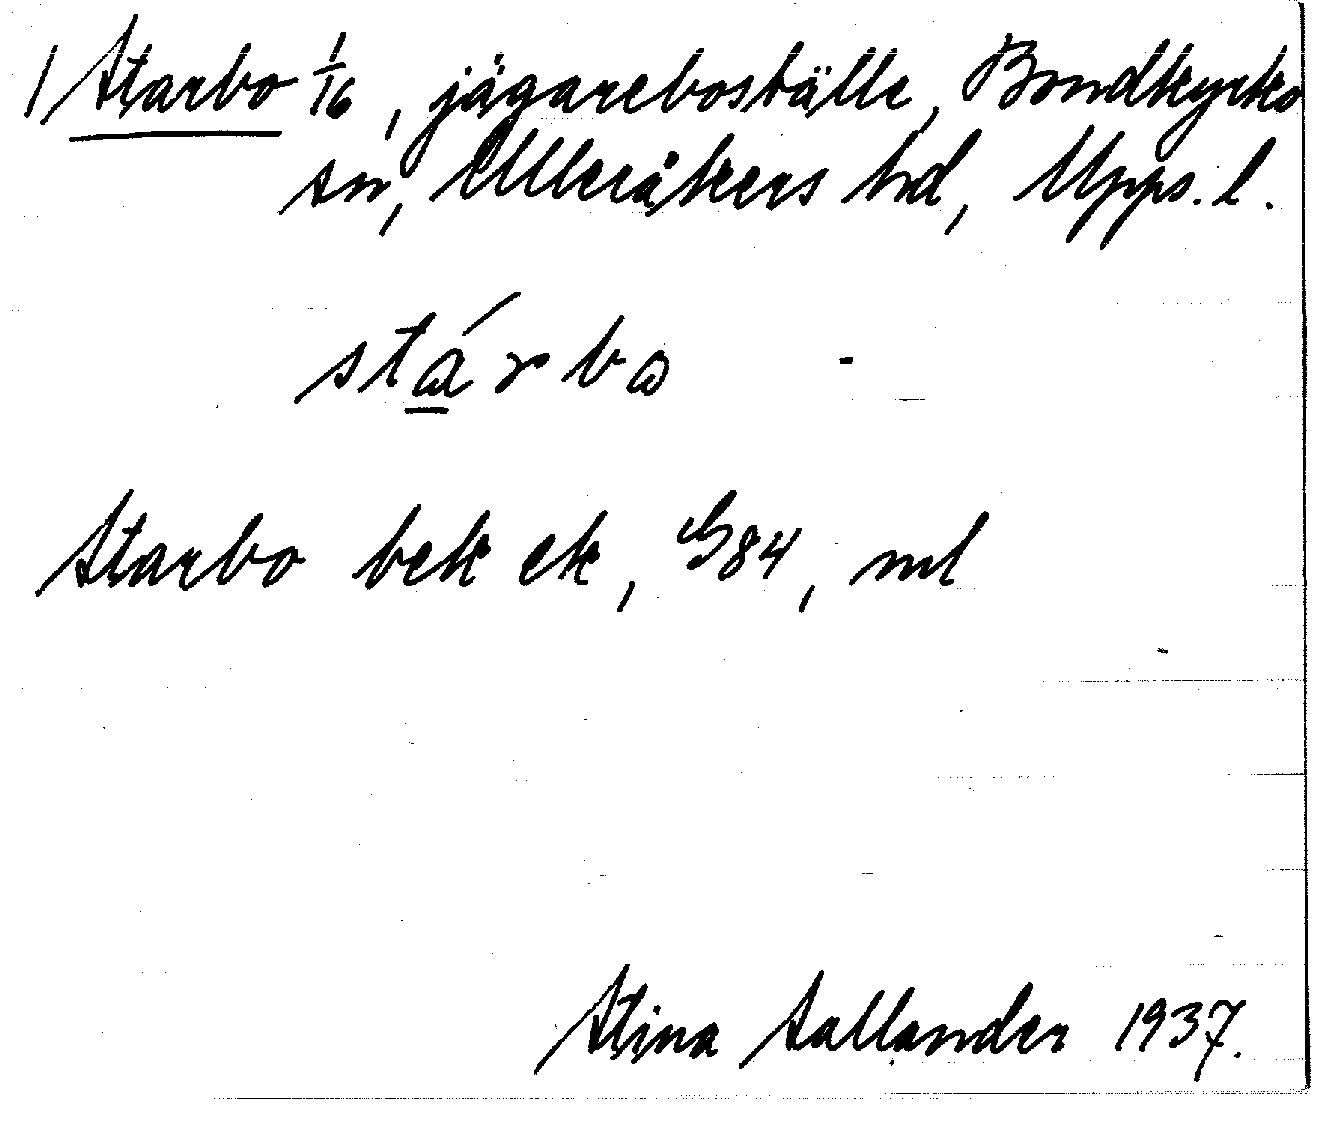 1 Starbo 1/16, jägareboställe, Bondkyrko
sn, Ulleråkers hd, Upps. l.
stárbo
Starbo bek ek, G84, ml
Stina Sallander 1937.